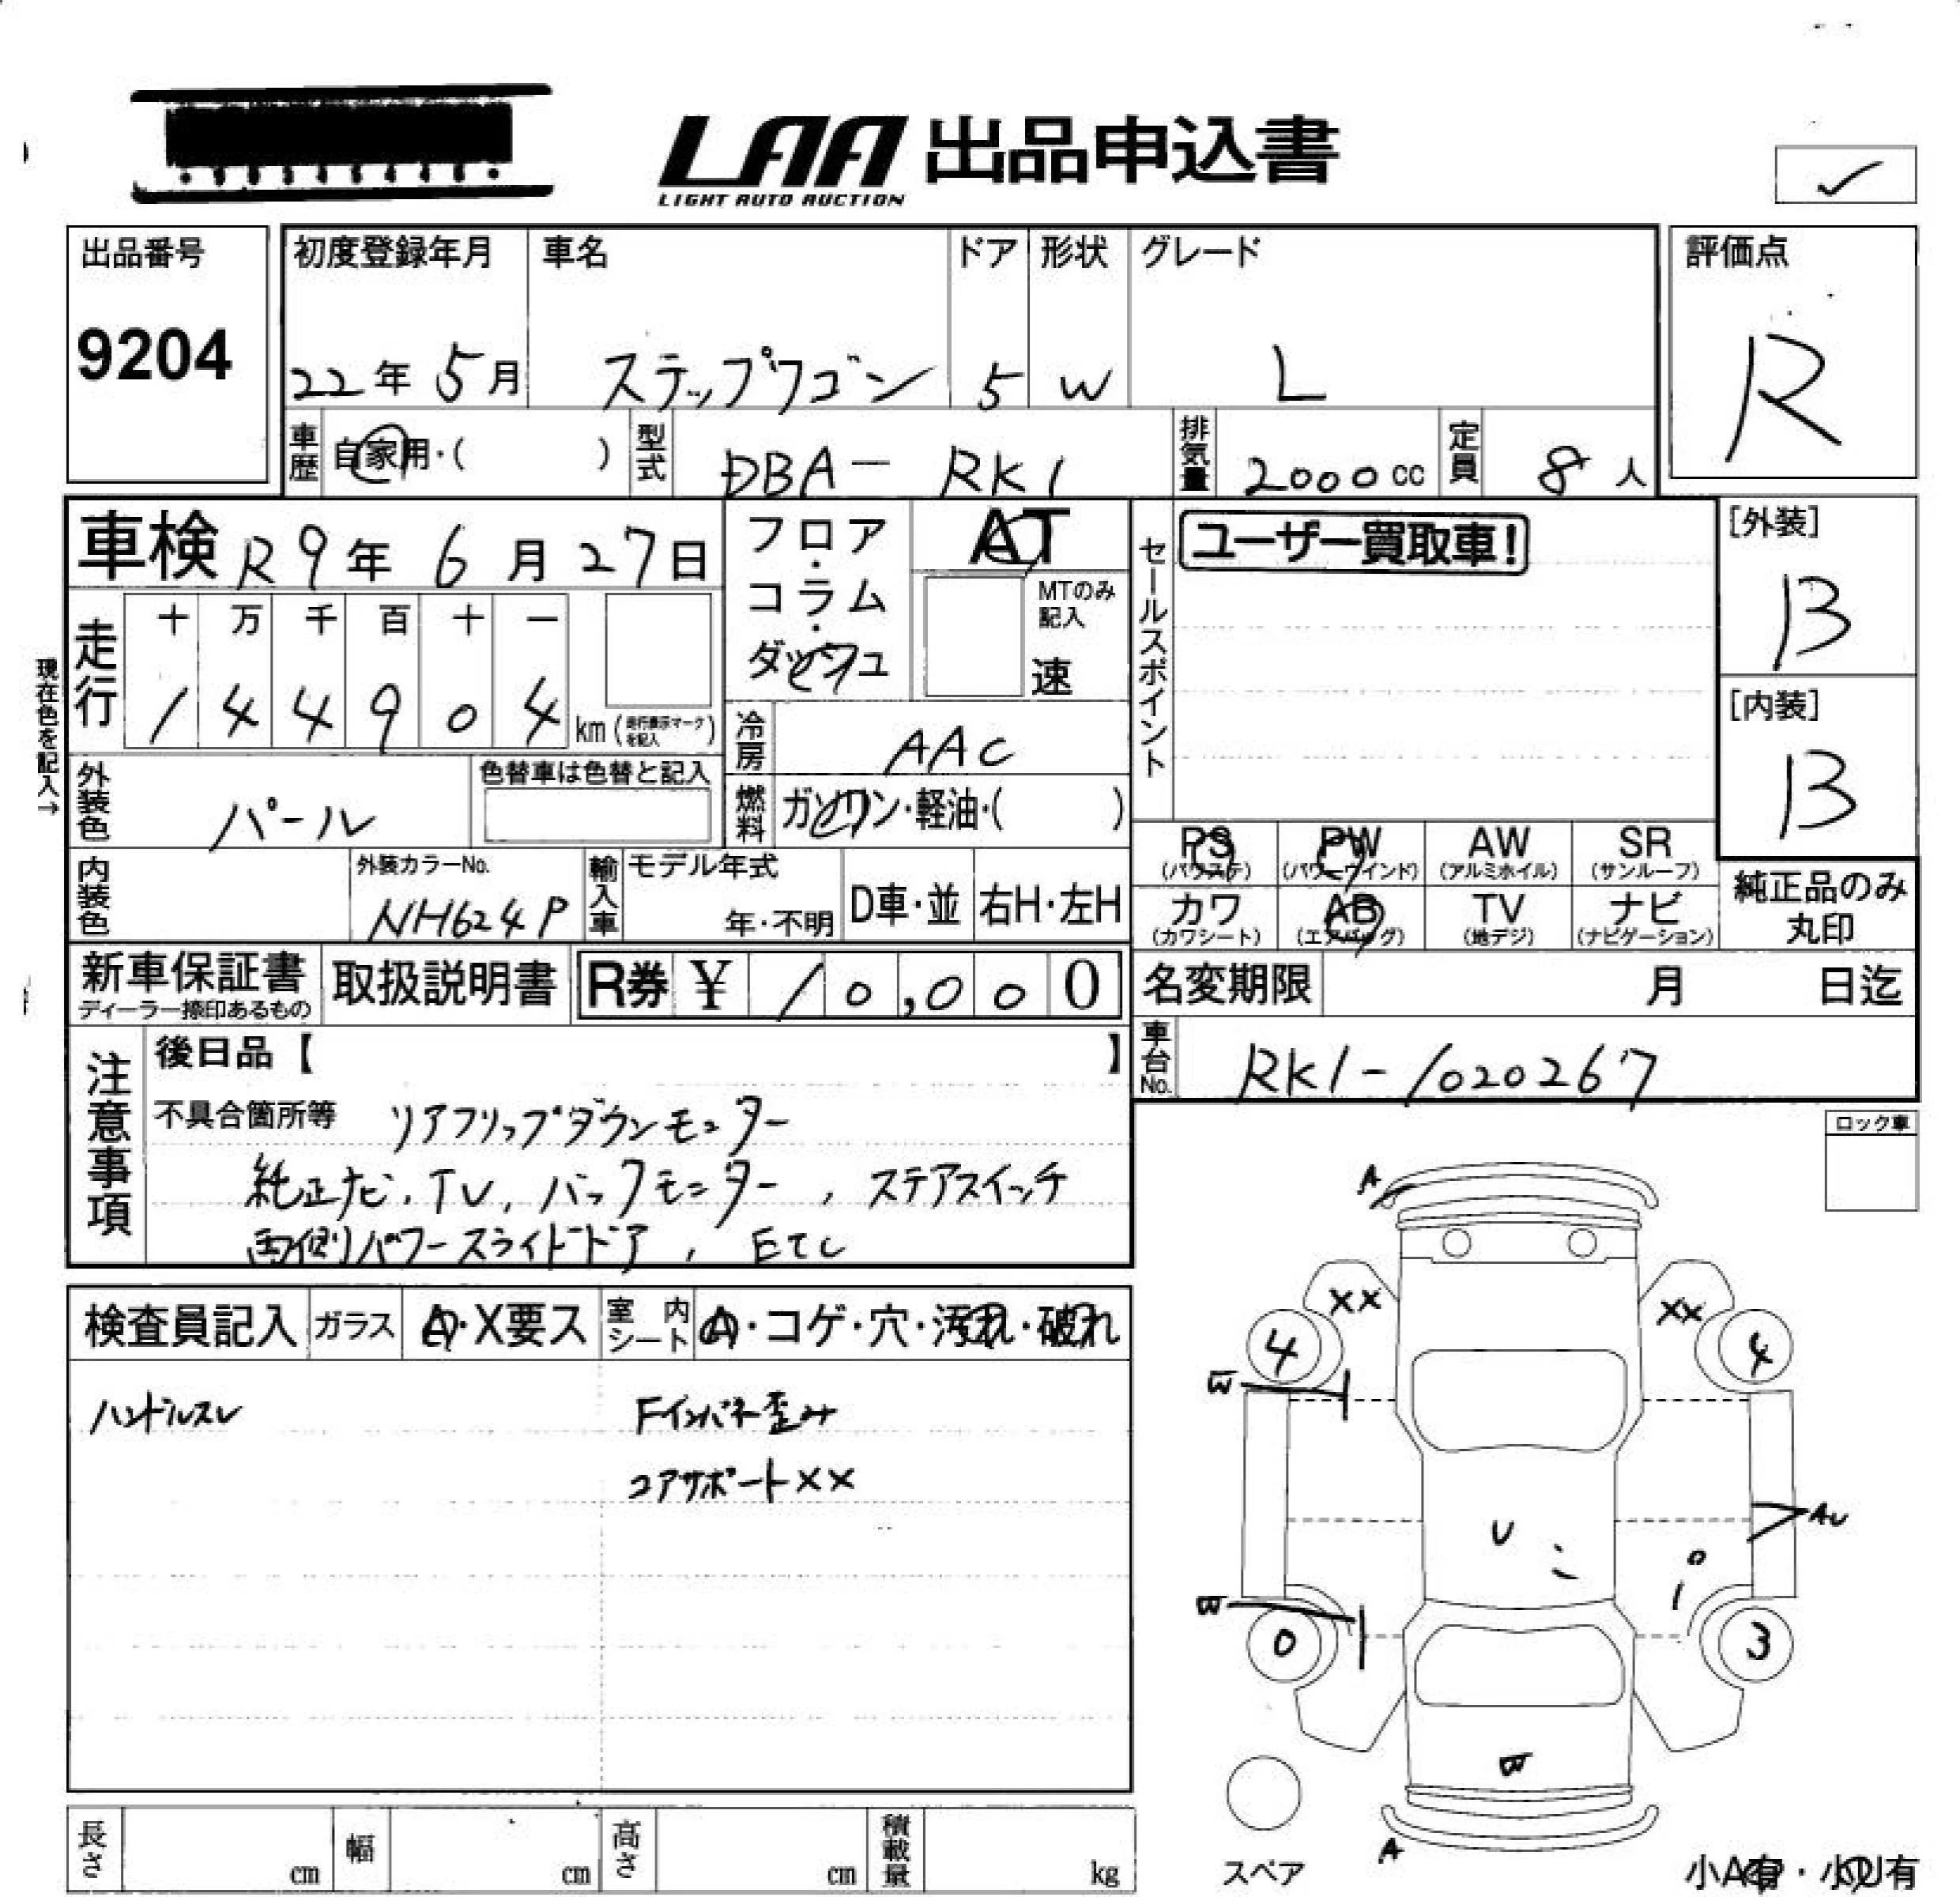 LAA 出品申込書
LIGHT AUTO AUCTION
出品番号
9204
初度登録年月
22年 5月
車名
ステップワゴン
ドア
5
形状
W
グレード
L
評価点
R
車歴
自家用・( )
型式
DBA- RK1
排気量
2000cc
定員
8人
車検 R9年 6月 27日
フロア・コラム・ダッシュ
AT
MTのみ記入
速
セールスポイント
ユーザー買取車!
[外装]
B
[内装]
B
現在色を記入→
走行
十 万 千 百 十 一
1 4 4 9 0 4 km (走行表示マークを記入)
冷房
AAC
外装色
パール
色替車は色替と記入
燃料
ガソリン・軽油・( )
PS (パワステ)
PW (パワーウインド)
AW (アルミホイル)
SR (サンルーフ)
カワ (カワシート)
AB (エアバッグ)
TV (地デジ)
ナビ (ナビゲーション)
純正品のみ丸印
内装色
外装カラーNo.
NH624P
輸入車
モデル年式
年・不明
D車・並
右H・左H
新車保証書
ディーラー捺印あるもの
取扱説明書
R券 ¥ 10,000
名変期限 月 日迄
車台No.
RK1-1020267
注意事項
後日品【 】
不具合箇所等 リアフリップダウンモニター
純正ナビ、TV、バックモニター、ステアスイッチ
両側パワースライドドア、ETC
ロック車
検査員記入
ガラス
A・X要ス
室内シート
A・コゲ・穴・汚れ・破れ
ハンドルスレ
Fインパネ歪み
コアサポートXX
A
XX
XX
4
4
W
U
AU
W
0
3
W
A
スペア
小A有・小U有
長さ cm
幅 cm
高さ cm
積載量 kg